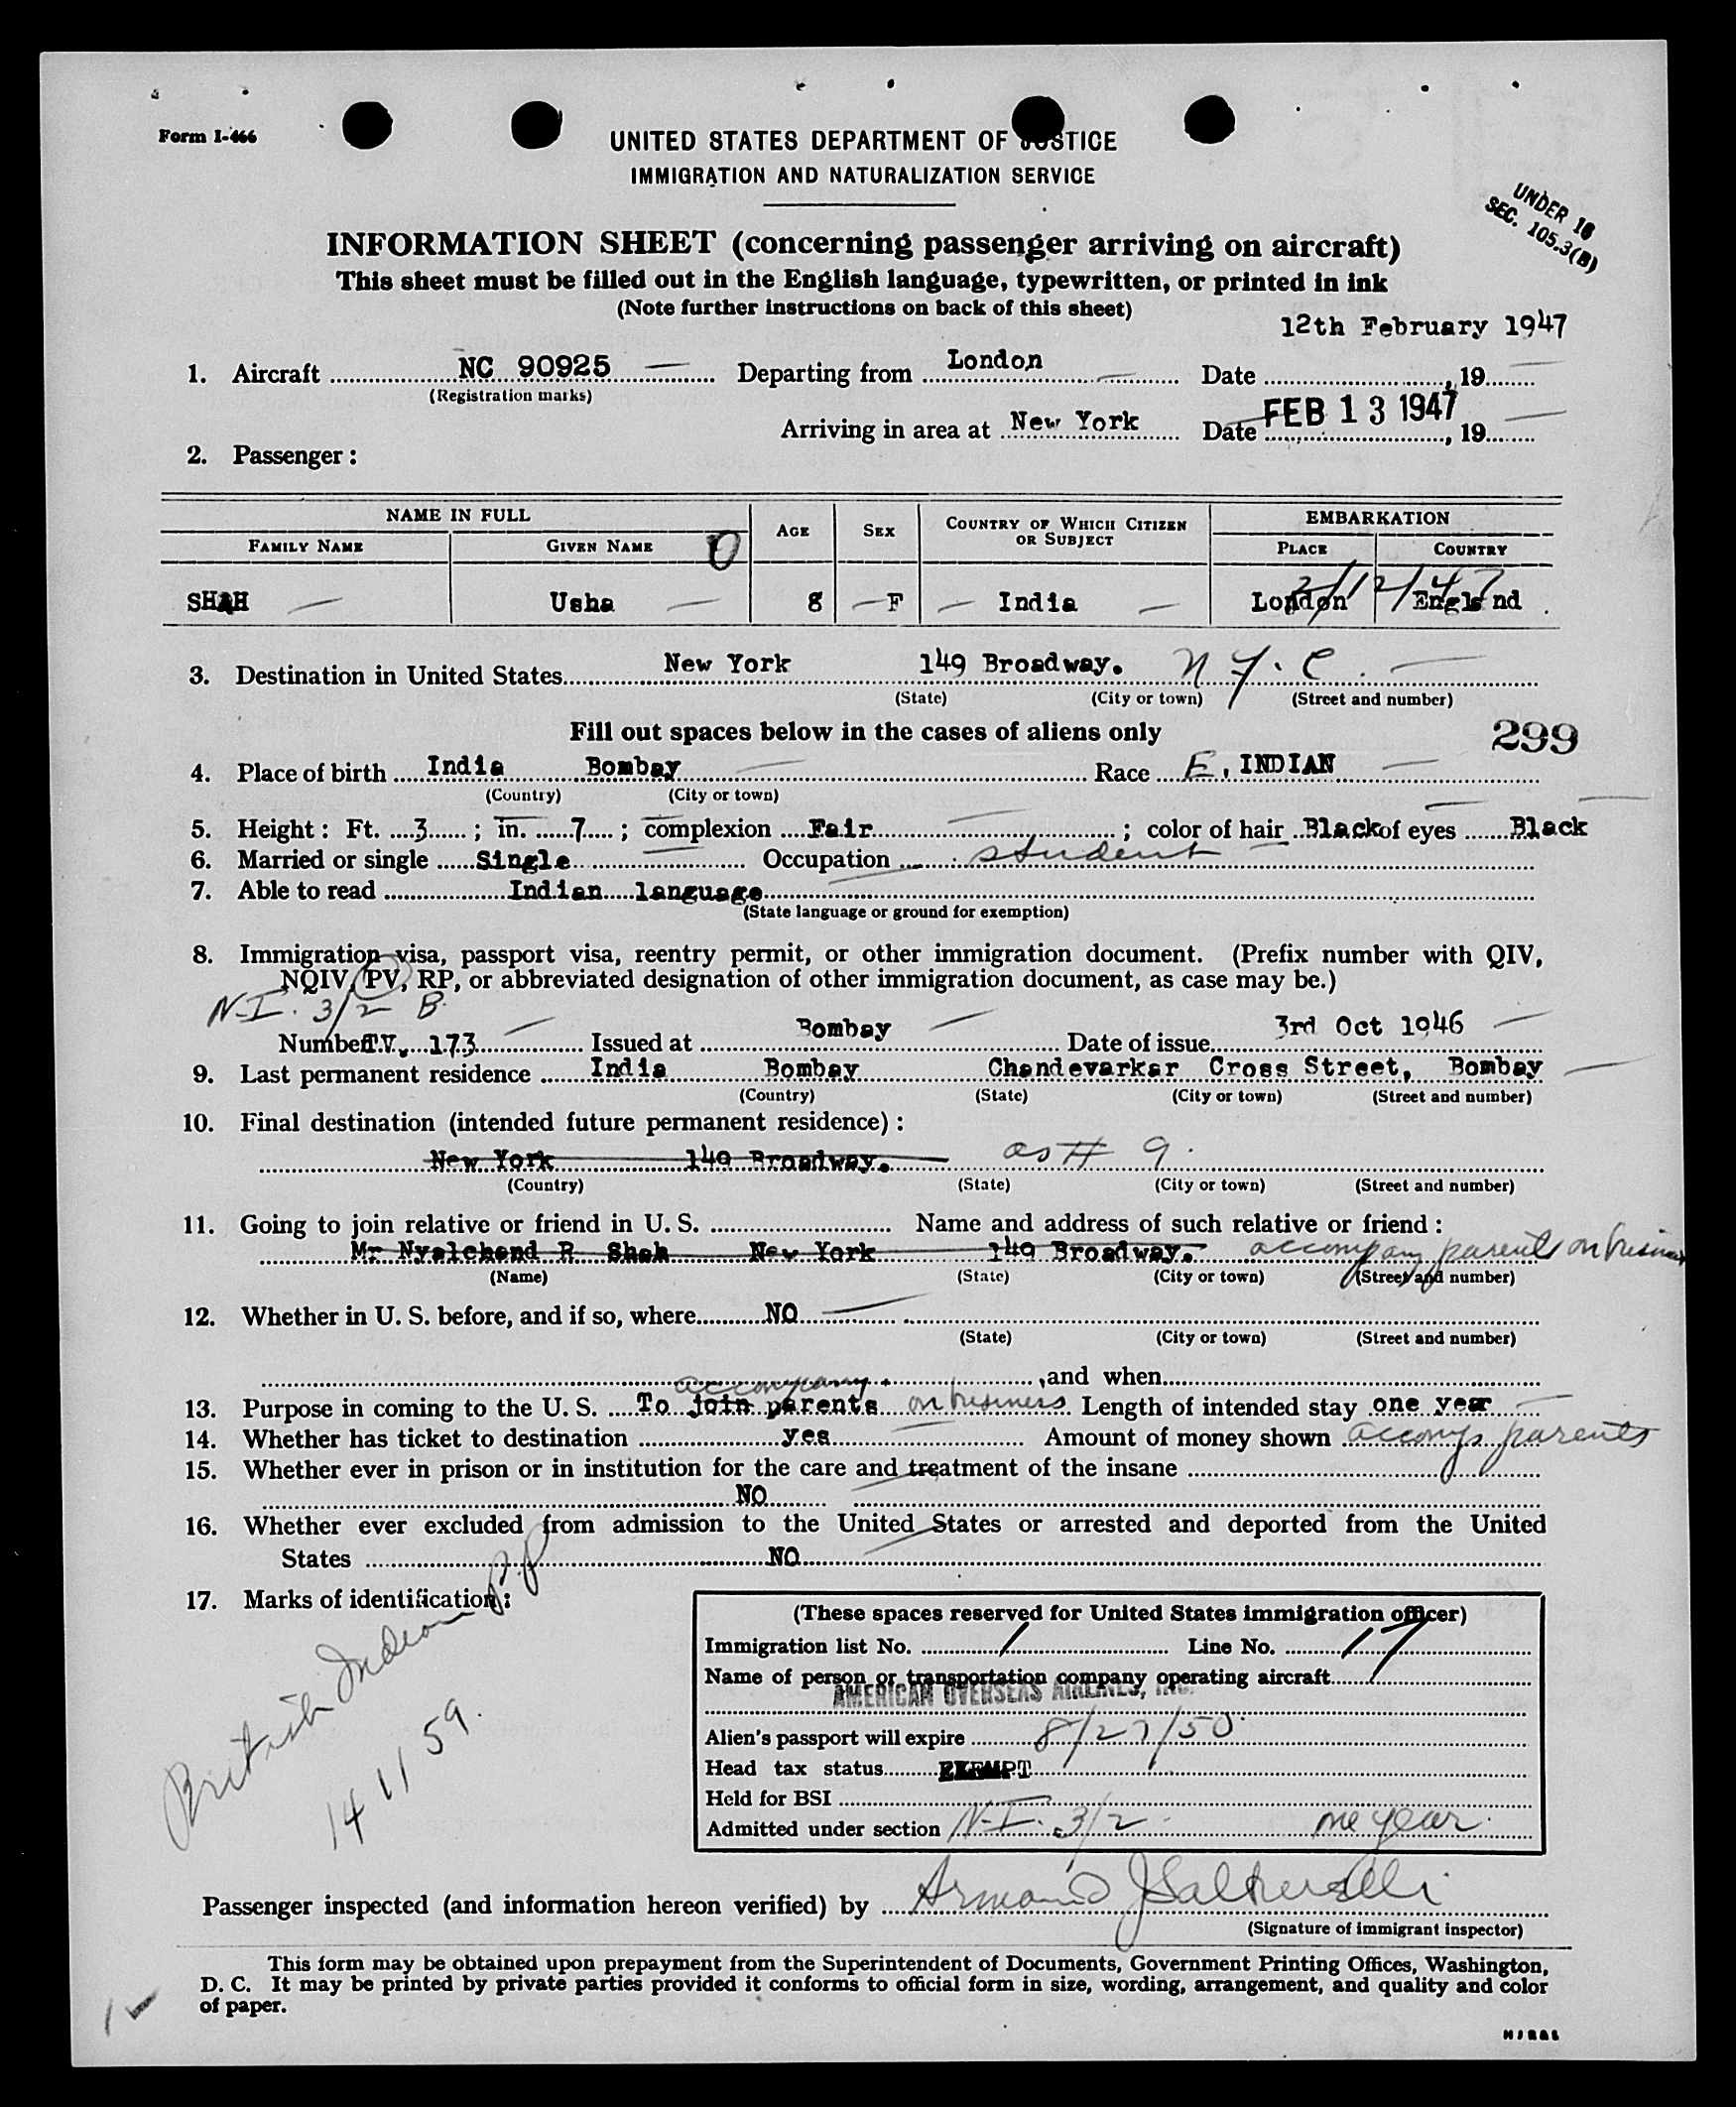 Form I-466
UNITED STATES DEPARTMENT OF JUSTICE
IMMIGRATION AND NATURALIZATION SERVICE
UNDER 16
SEC. 105.3(B)
INFORMATION SHEET (concerning passenger arriving on aircraft)
This sheet must be filled out in the English language, typewritten, or printed in ink
(Note further instructions on back of this sheet)
12th February 1947
1. Aircraft NC 90925 Departing from London Date , 19
(Registration marks)
Arriving in area at New York Date FEB 13 1947 , 19
2. Passenger :
NAME IN FULL AGE SEX COUNTRY OF WHICH CITIZEN OR SUBJECT EMBARKATION
FAMILY NAME GIVEN NAME PLACE COUNTRY
SHAH Usha 8 F India London England
2/12/47
3. Destination in United States New York 149 Broadway. N.Y.C.
(State) (City or town) (Street and number)
Fill out spaces below in the cases of aliens only
299
4. Place of birth India Bombay Race E. INDIAN
(Country) (City or town)
5. Height : Ft. 3 ; in. 7 ; complexion Fair ; color of hair Black of eyes Black
6. Married or single Single Occupation student
7. Able to read Indian language
(State language or ground for exemption)
8. Immigration visa, passport visa, reentry permit, or other immigration document. (Prefix number with QIV,
NQIV, PV, RP, or abbreviated designation of other immigration document, as case may be.)
N-I. 3/2 B.
Number T.V. 173 Issued at Bombay Date of issue 3rd Oct 1946
9. Last permanent residence India Bombay Chandevarkar Cross Street, Bombay
(Country) (State) (City or town) (Street and number)
10. Final destination (intended future permanent residence) :
New York 149 Broadway. as # 9.
(Country) (State) (City or town) (Street and number)
11. Going to join relative or friend in U. S. Name and address of such relative or friend :
Mr Nyalchand R. Shah New York 149 Broadway. accompany parents on business
(Name) (State) (City or town) (Street and number)
12. Whether in U. S. before, and if so, where NO
(State) (City or town) (Street and number)
, and when
accompany
13. Purpose in coming to the U. S. To join parents on business Length of intended stay one year
14. Whether has ticket to destination yes Amount of money shown accomp parents
15. Whether ever in prison or in institution for the care and treatment of the insane
NO
16. Whether ever excluded from admission to the United States or arrested and deported from the United
States NO
17. Marks of identification :
British Indian P.P
141159.
(These spaces reserved for United States immigration officer)
Immigration list No. 1 Line No. 17
Name of person or transportation company operating aircraft
AMERICAN OVERSEAS AIRLINES, INC.
Alien's passport will expire 8/27/50
Head tax status EXEMPT
Held for BSI
Admitted under section N-I. 3/2. one year.
Passenger inspected (and information hereon verified) by
(Signature of immigrant inspector)
This form may be obtained upon prepayment from the Superintendent of Documents, Government Printing Offices, Washington,
D. C. It may be printed by private parties provided it conforms to official form in size, wording, arrangement, and quality and color
of paper.